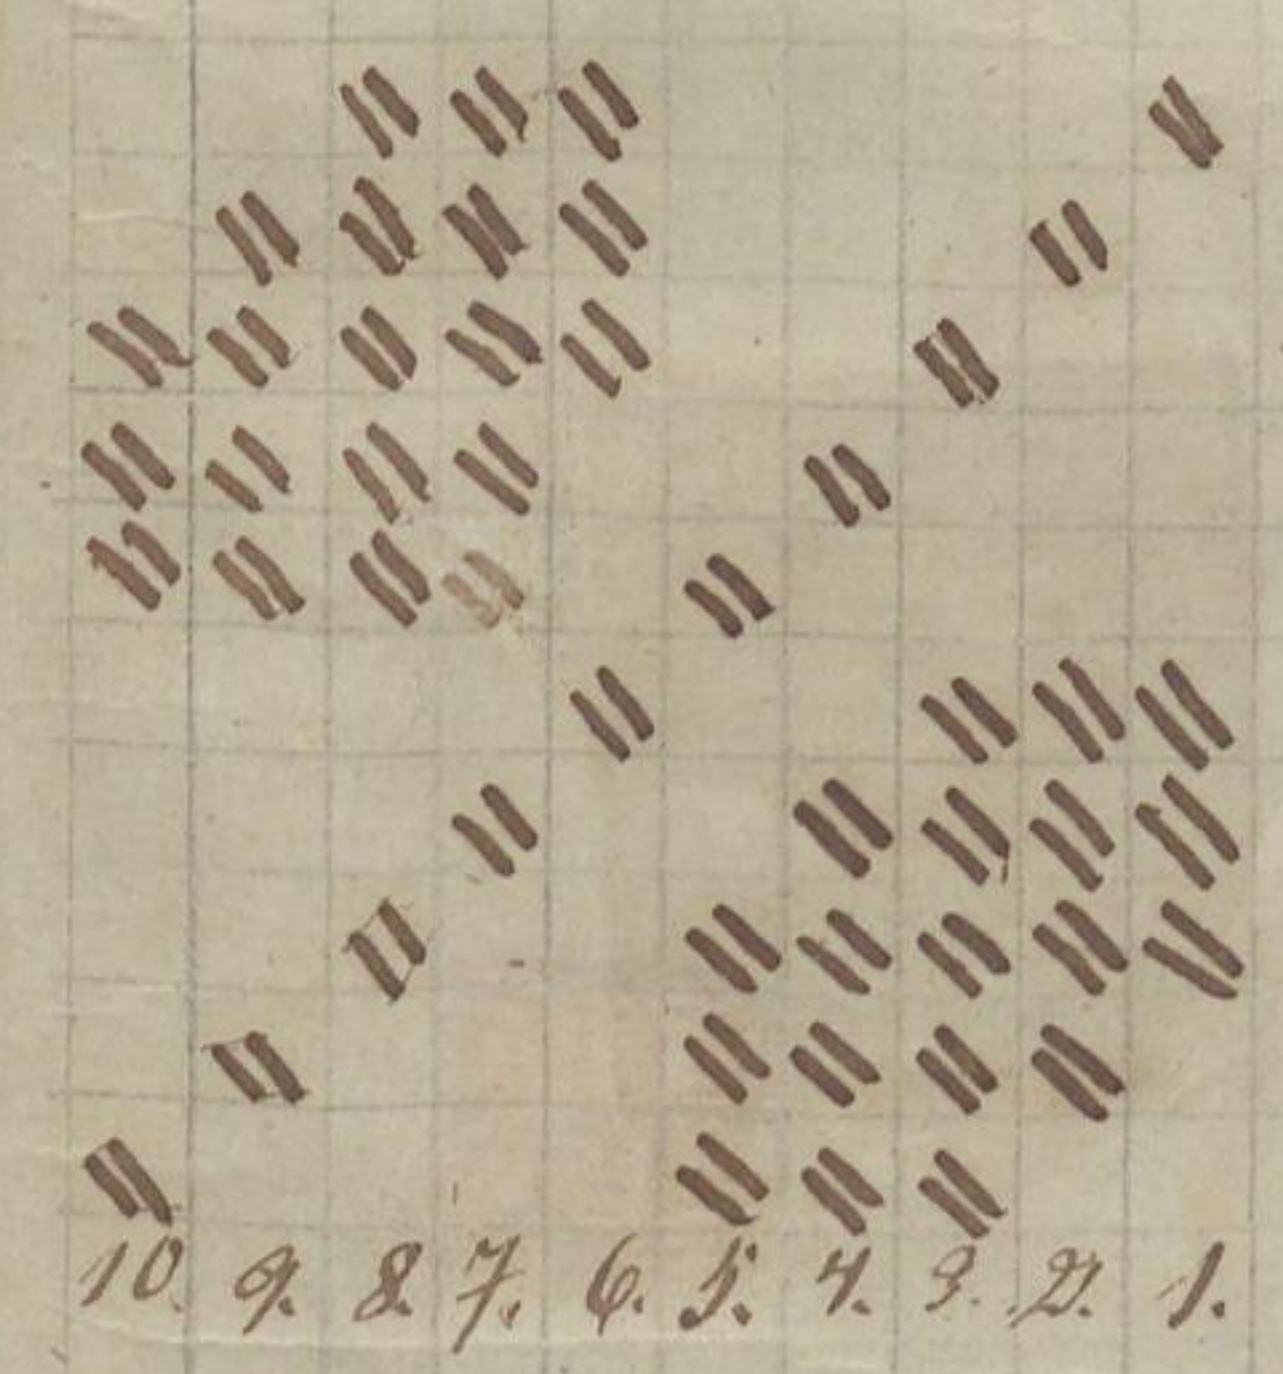 10. 9. 8. 7. 6. 5. 4. 3. 2. 1.